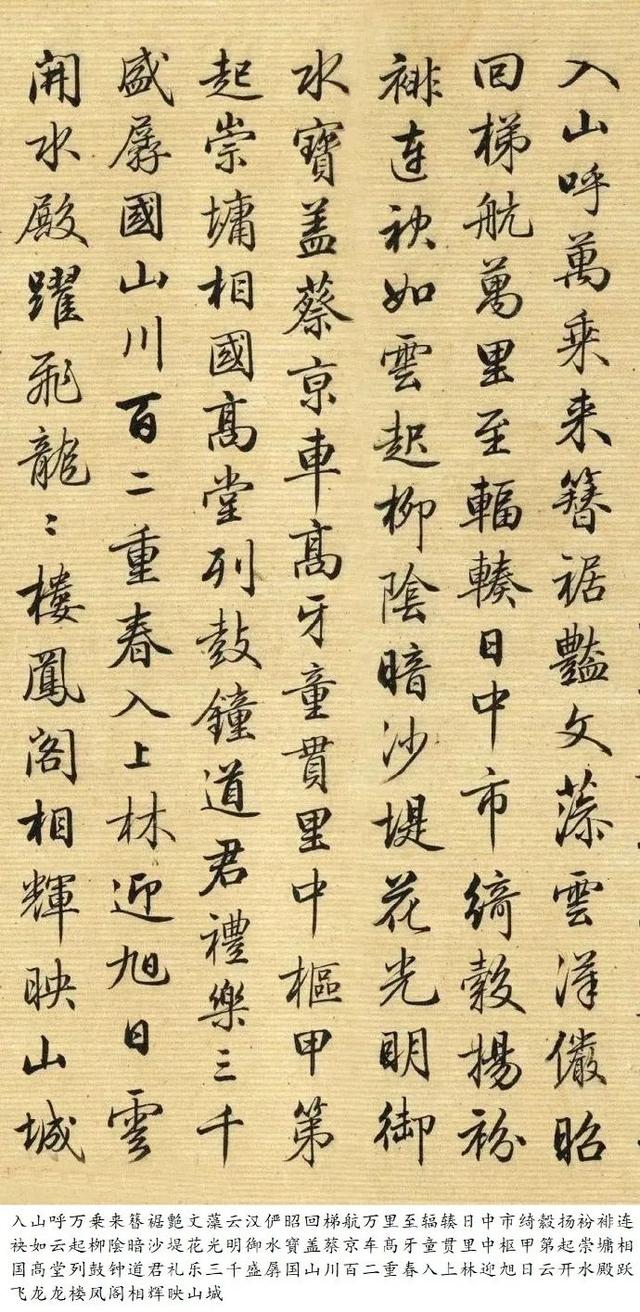 入山呼萬乗来簪裾豔文藻雲漢儼昭
回梯航萬里至輻輳日中市綺縠揚衯
裶連袂如雲起柳陰暗沙堤花光明御
水寶盖蔡京車髙牙童貫里中樞甲第
起崇墉相國髙堂列鼓鐘道君禮樂三千
盛孱國山川百二重春入上林迎旭日雲
開水殿躍飛龍〻樓鳳閣相輝映山城
入山呼万乗来簪裾艶文藻云汉俨昭回梯航万里至辐辏日中市绮縠扬衯裶连
袂如云起柳陰暗沙堤花光明御水寶盖蔡京车髙牙童贯里中枢甲第起崇墉相
国髙堂列鼓钟道君礼乐三千盛孱国山川百二重春入上林迎旭日云开水殿跃
飞龙龙楼风阁相辉映山城